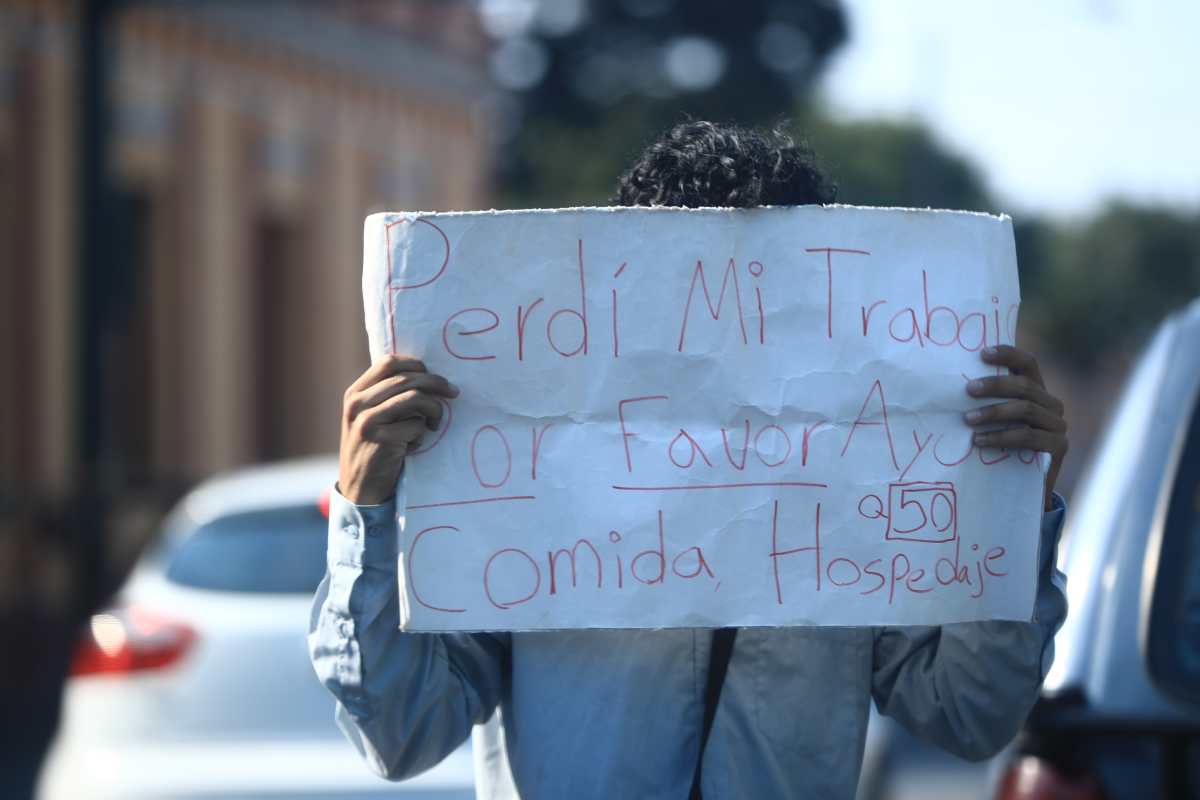 Perdí Mi Trabajo
Por Favor Ayuda
Q50
Comida, Hospedaje